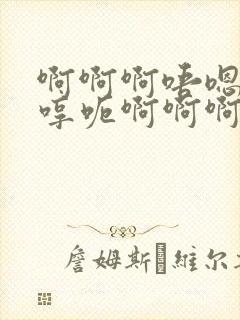 啊啊啊唔嗯
哼呃啊啊啊
詹姆斯維尔